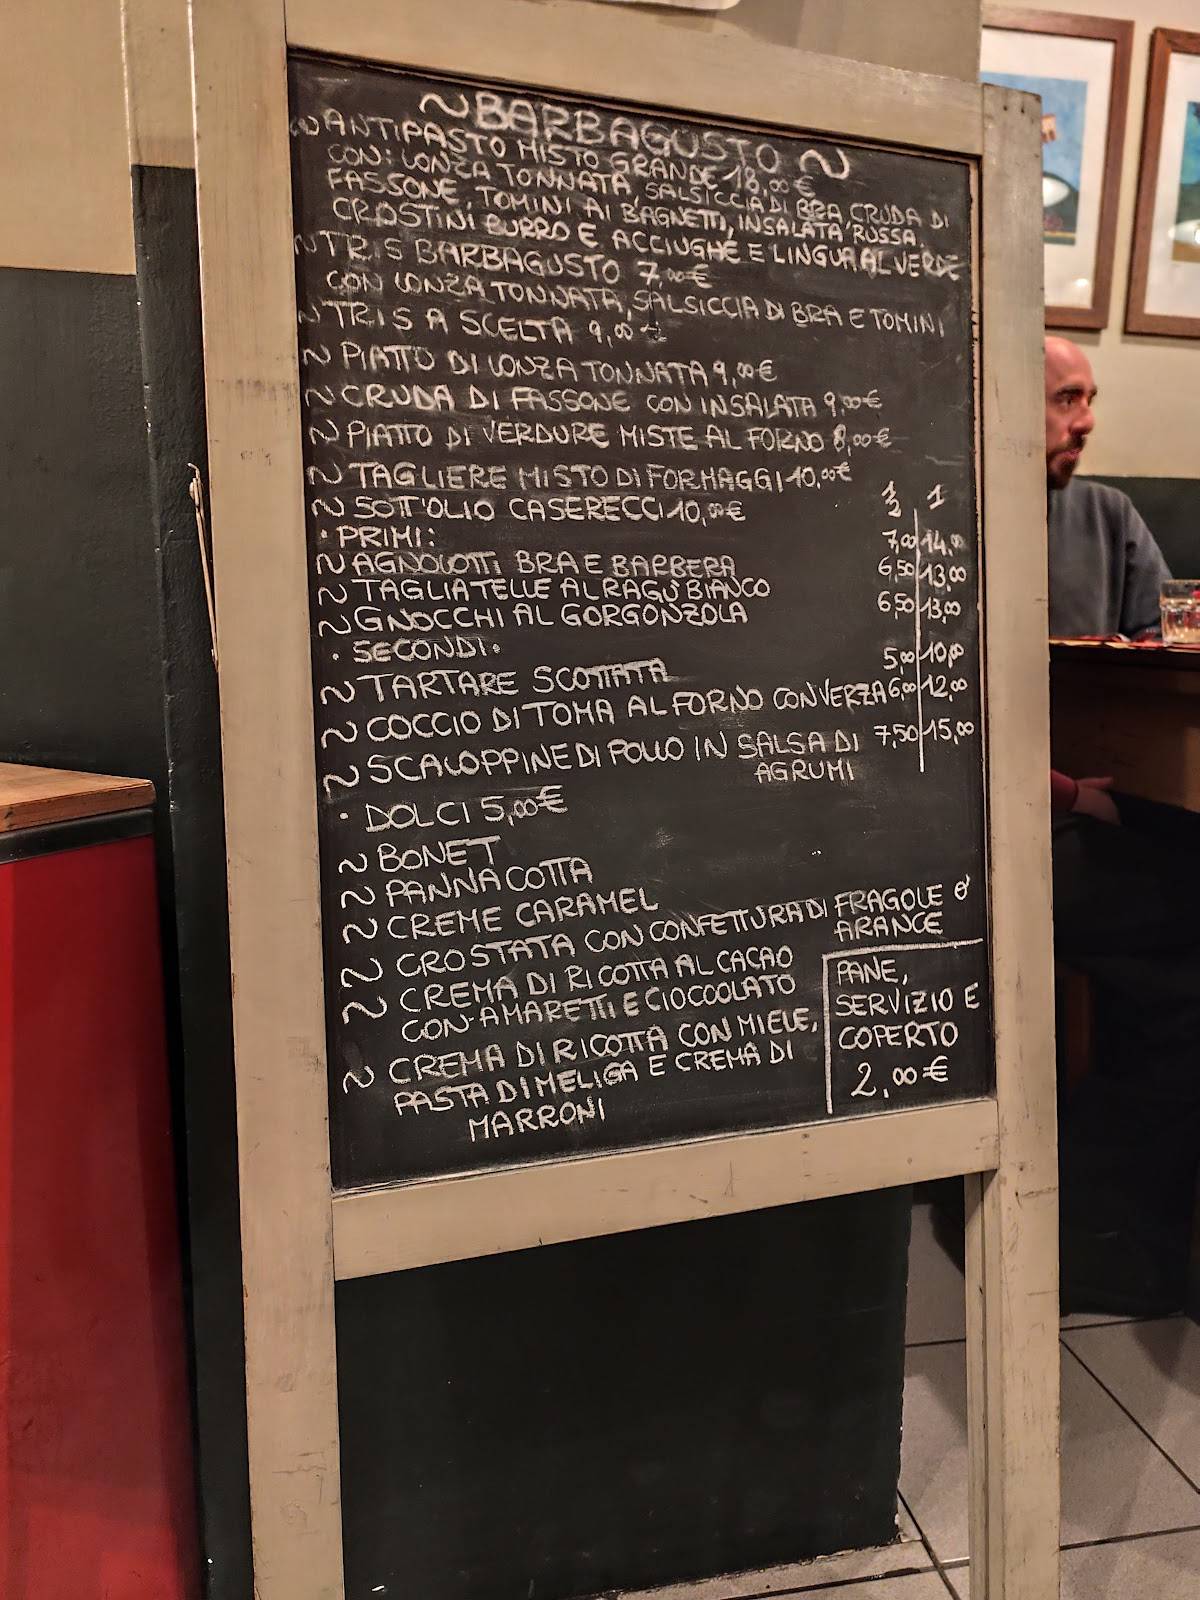 ~BARBAGUSTO~
~ANTIPASTO MISTO GRANDE 18,00€
CON: LONZA TONNATA, SALSICCIA DI BRA, CRUDA DI
FASSONE, TOMINI AI BAGNETTI, INSALATA RUSSA,
CROSTINI BURRO E ACCIUGHE E LINGUA AL VERDE
~TRIS BARBAGUSTO 7,00€
CON LONZA TONNATA, SALSICCIA DI BRA E TOMINI
~TRIS A SCELTA 9,00€
~PIATTO DI LONZA TONNATA 9,00€
~CRUDA DI FASSONE CON INSALATA 9,00€
~PIATTO DI VERDURE MISTE AL FORNO 8,00€
~TAGLIERE MISTO DI FORMAGGI 10,00€
~SOTT'OLIO CASERECCI 10,00€ 1/2 1
• PRIMI:
~AGNOLOTTI BRA E BARBERA 7,00 14,00
~TAGLIATELLE AL RAGÙ BIANCO 6,50 13,00
~GNOCCHI AL GORGONZOLA 6,50 13,00
• SECONDI•
~TARTARE SCOTTATA 5,00 10,00
~COCCIO DI TOMA AL FORNO CON VERZA 6,00 12,00
~SCALOPPINE DI POLLO IN SALSA DI 7,50 15,00
AGRUMI
• DOLCI 5,00€
~BONET
~PANNA COTTA
~CREME CARAMEL
~CROSTATA CON CONFETTURA DI FRAGOLE O'
ARANCE
~CREMA DI RICOTTA AL CACAO
CON AMARETTI E CIOCCOLATO
~CREMA DI RICOTTA CON MIELE,
PASTA DI MELIGA E CREMA DI
MARRONI
PANE,
SERVIZIO E
COPERTO
2,00€